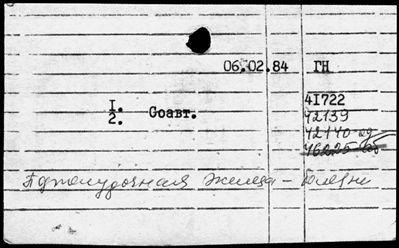 06.02.84 ГН
1. 41722
2. Соавт.
42139
42140-
46225-
Поджелудочная железа - болезни